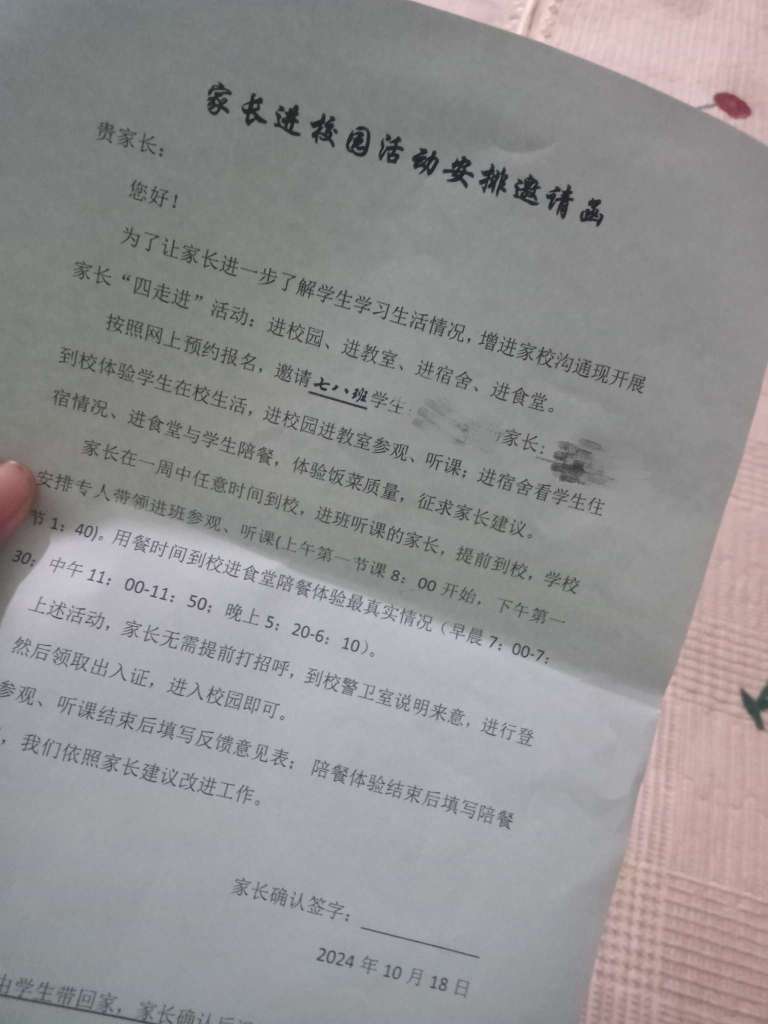 家长进校园活动安排邀请函
贵家长：
您好！
为了让家长进一步了解学生学习生活情况，增进家校沟通现开展
家长“四走进”活动：进校园、进教室、进宿舍、进食堂。
按照网上预约报名，邀请七八班学生： 家长：
到校体验学生在校生活，进校园进教室参观、听课；进宿舍看学生住
宿情况、进食堂与学生陪餐，体验饭菜质量，征求家长建议。
家长在一周中任意时间到校，进班听课的家长，提前到校，学校
安排专人带领进班参观、听课(上午第一节课 8：00 开始，下午第一
节 1：40)。用餐时间到校进食堂陪餐体验最真实情况（早晨 7：00-7：
30；中午 11：00-11：50；晚上 5：20-6：10）。
上述活动，家长无需提前打招呼，到校警卫室说明来意，进行登
然后领取出入证，进入校园即可。
参观、听课结束后填写反馈意见表；陪餐体验结束后填写陪餐
，我们依照家长建议改进工作。
家长确认签字：
2024 年 10 月 18 日
由学生带回家，家长确认后